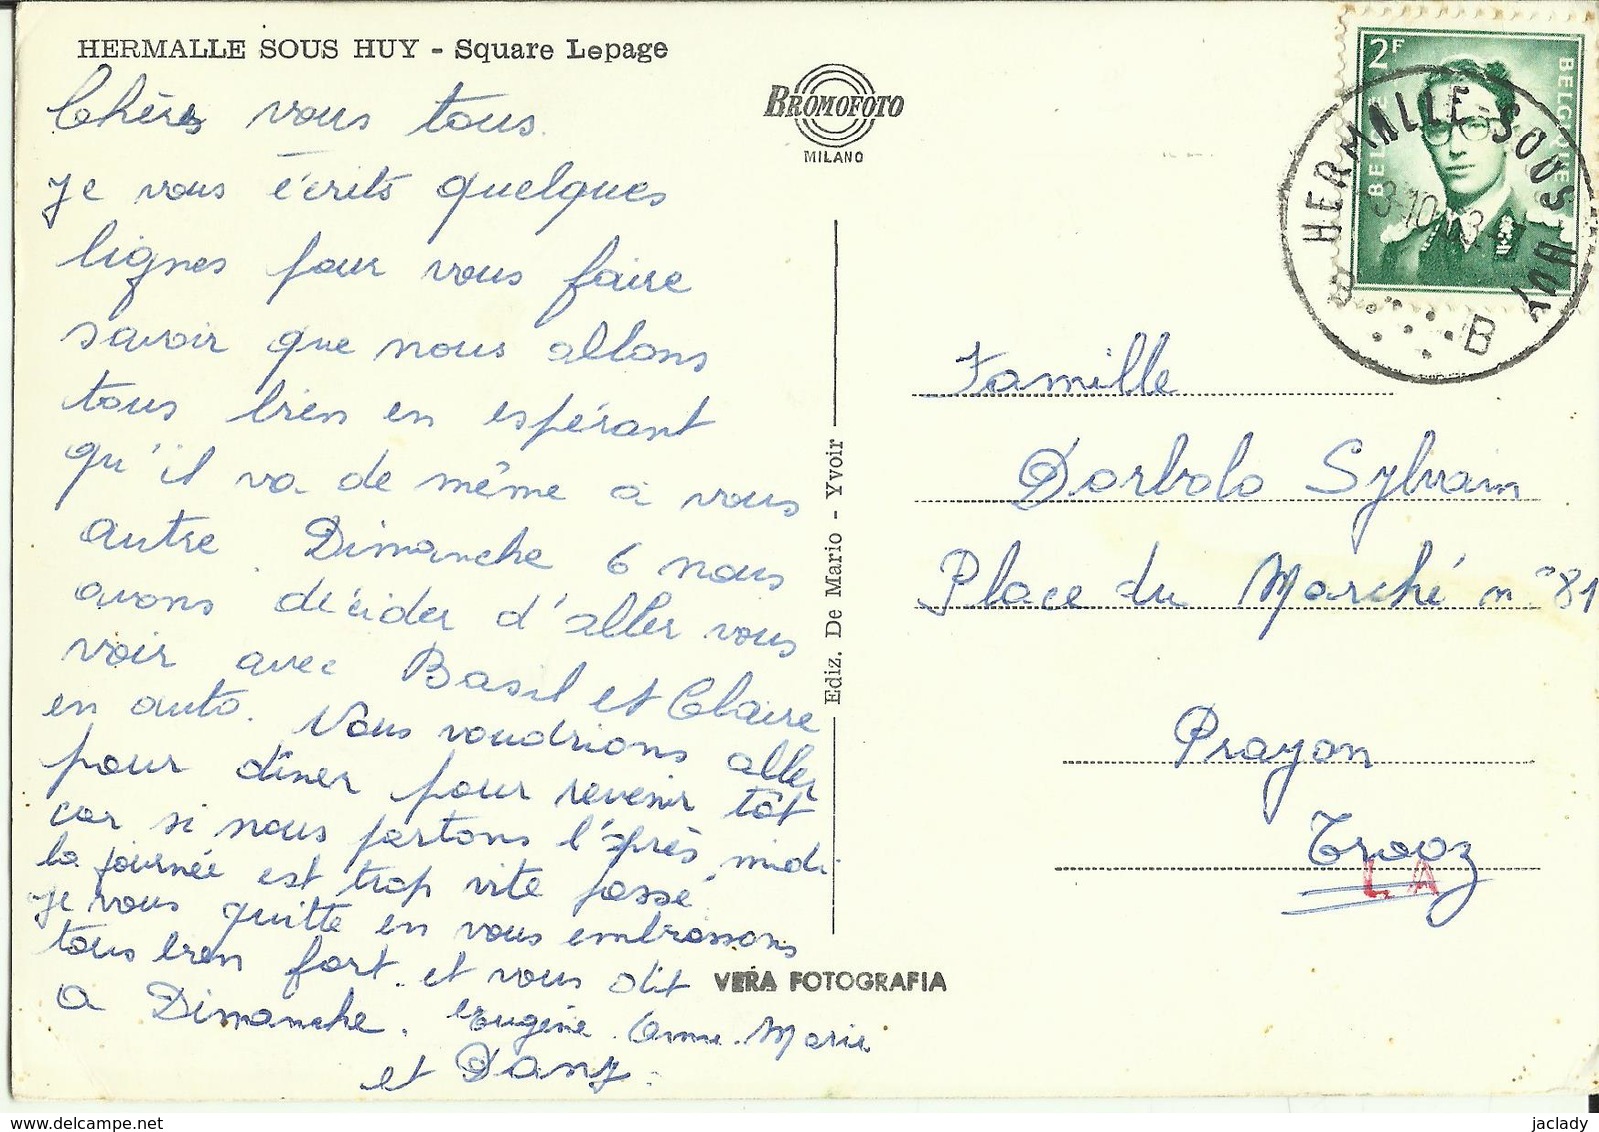 HERMALLE SOUS HUY - Square Lepage
Chèrs vous tous.
Je vous écrits quelques
lignes pour vous faire
savoir que nous allons
tous bien en espérant
qu'il va de même a vous
autre. Dimanche 6 nous
avons décider d'aller vous
voir avec Basil et Claire
en auto. Nous voudrions aller
pour dîner pour revenir tôt
car si nous partons l'après midi
la journée est trop vite passé.
Je vous quitte en vous embrassons
tous bien fort. et vous dit
a Dimanche. Eugène. Anne-Marie
et Dany.
BROMOFOTO
MILANO
Ediz. De Mario - Yvoir
VERA FOTOGRAFIA
2F
BELGIE
BELGIQUE
HERMALLE-SOUS-HUY
B B
Famille
Dorbolo Sylvain
Place du Marché n°81
Prayon
Trooz
LA
jaclady